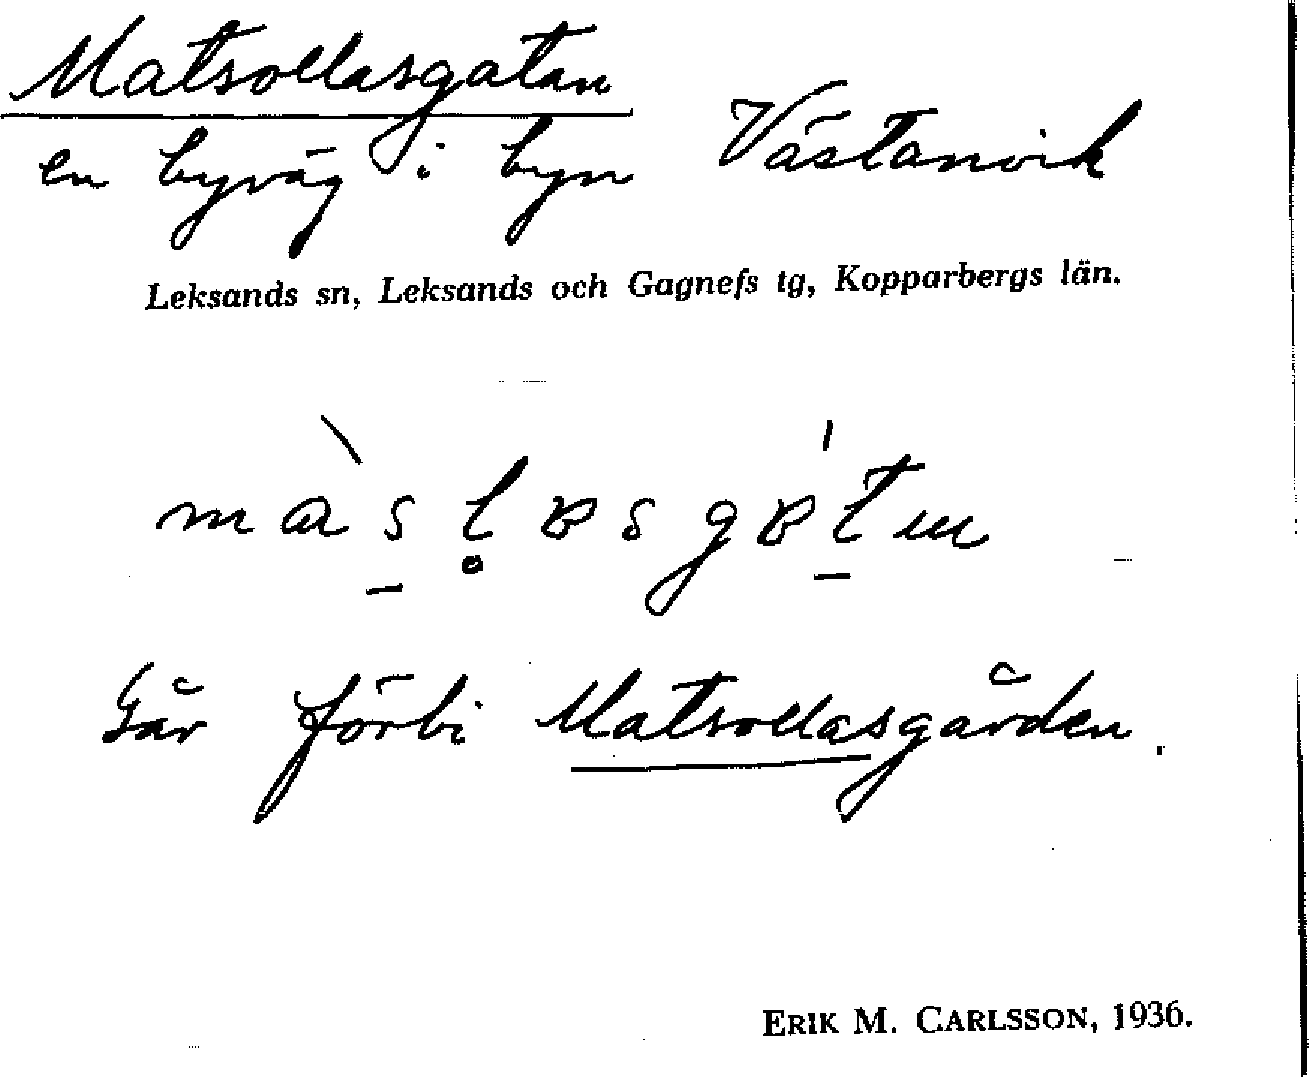 Matsollasgatan
en byväg i byn Västanvik
Leksands sn, Leksands och Gagnefs tg, Kopparbergs län.
Går förbi Matsollasgården.
ERIK M. CARLSSON, 1936.